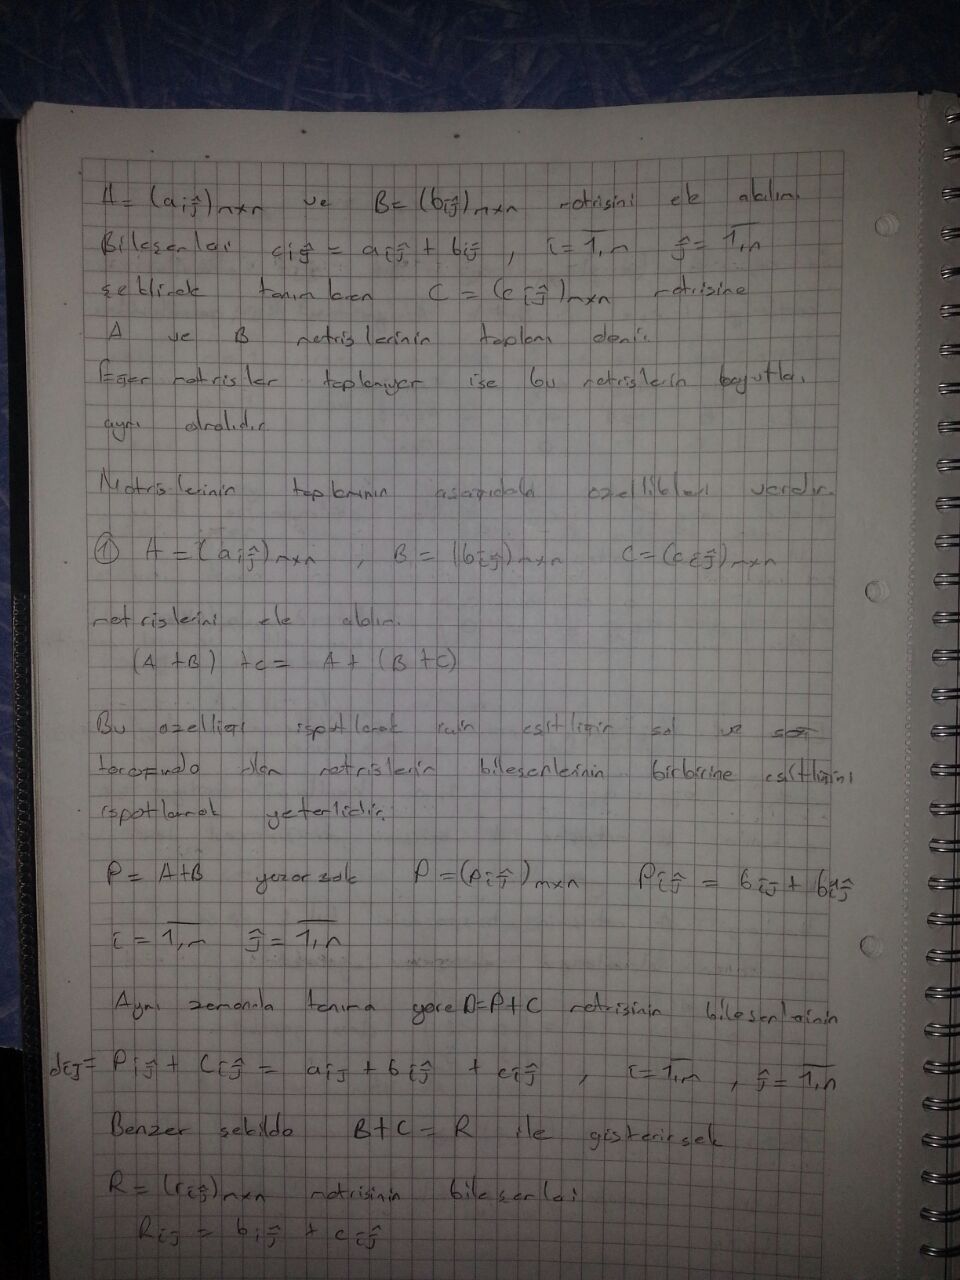 A = (aij)mxn ve B = (bij)mxn matrisini ele alalım.
Bileşenleri cij = aij + bij , i = 1,m j = 1,n
şeklinde tanımlanan C = (cij)mxn matrisine
A ve B matrislerinin toplamı denir.
Eğer matrisler toplanıyor ise bu matrislerin boyutları
aynı olmalıdır.
Matrislerinin toplamının aşağıdaki özellikleri vardır.
① A = (aij)mxn , B = (bij)mxn C = (cij)mxn
matrislerini ele alalım.
(A + B) + C = A + (B + C)
Bu özelliği ispatlamak için eşitliğin sol ve sağ
tarafında olan matrislerin bileşenlerinin birbirine eşitliğini
ispatlamak yeterlidir.
P = A+B yazarsak P = (Pij)mxn Pij = bij + bij
i = 1,m j = 1,n
Aynı zamanda tanıma göre D=P+C matrisinin bileşenlerinin
dij = Pij + Cij = aij + bij + cij , i = 1,m , j = 1,n
Benzer şekilde B+C = R ile gösterirsek
R = (rij)mxn matrisinin bileşenleri
Rij = bij + cij